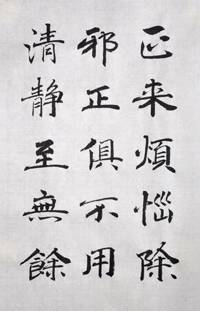 正来煩惱除
邪正俱不用
清静至無餘